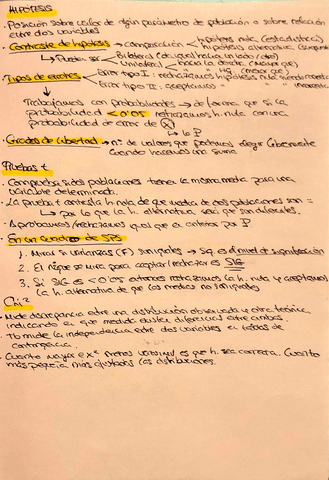 HIPÓTESIS
· Posición sobre valor de algún parámetro de población o sobre relación
entre dos variables
· Contraste de hipótesis → comparación hipótesis nula (estadística)
hipótesis alternativa
→ Puede ser Bilateral
Unilateral → hacia la
· Tipos de errores Error tipo I: rechazamos hipótesis nula siendo
Error tipo II: aceptamos
Trabajamos con probabilidades → de forma que si la
probabilidad < 0'05 rechazamos h. nula con una
probabilidad de error de α
↳ lo P
· Grados de libertad → nº de valores que podemos elegir libremente
cuando hacemos una suma
Pruebas t
· Comprueba si dos poblaciones tienen la misma media para una
variable determinada.
· La prueba t contesta h. nula de que media de dos poblaciones son =
↳ por lo que la h. alternativa será que son diferentes.
· Aprobamos/rechazamos igual que el anterior por P
· En un cuadro de SPS
1. Mirar si varianzas (F) son iguales → Sg. es el nivel de significación
2. El nº que se mira para aceptar/rechazar es SIG
3. Si SIG es < 0'05 entonces rechazamos la h. nula y aceptamos
la h. alternativa de que las medias no son iguales
Chi²
· Mide discrepancia entre una distribución observada y otra teórica,
indicando en que medida existen diferencias entre ambas.
· Tb mide la independencia entre dos variables en tablas de
contingencia.
· Cuanto mayor es x² menos verosímil es que h. sea correcta. Cuanto
más pequeña más ajustadas las distribuciones.